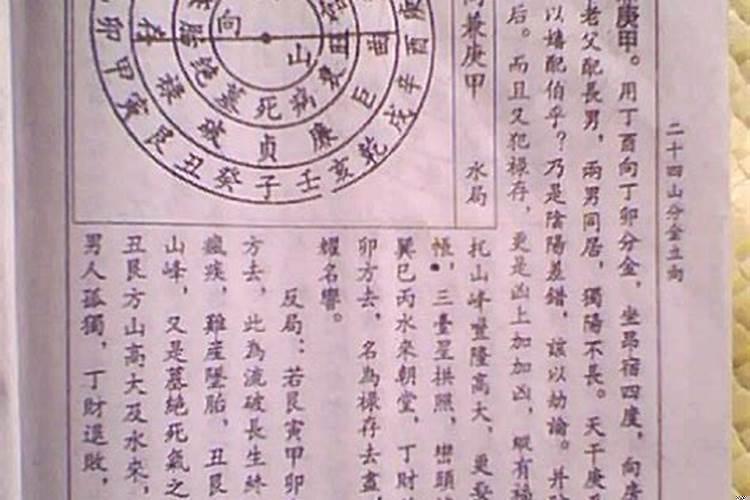 二十四山分金立向
庚甲。用丁酉向丁卯分金，坐昴宿四度，向
老父配長男，兩男同居，獨陽不長。天干庚
以嬉配伯乎？乃是陰陽差錯，該以劫論。并
后。而且又犯祿存，更是凶上加加凶，縱有福
兼庚甲 水局
向 山
胎 絕 墓 死 病 衰 旺
存 祿 破 貞 廉 巨
卯 甲 寅 艮 丑 癸 子 壬 亥 乾 戌 辛 酉 庚
托山峰豐隆高大，更
帳，三臺星拱照，巒頭
巽巳丙水來朝堂，丁財
卯方去，名為祿存去盡，
耀名譽。
反局：若艮寅甲卯
方去，此為流破長生
瘋疾，雞產墜胎，丑艮
山峰，又是墓絕死氣之
丑艮方山高大及水來，
男人孤獨，丁財退敗，